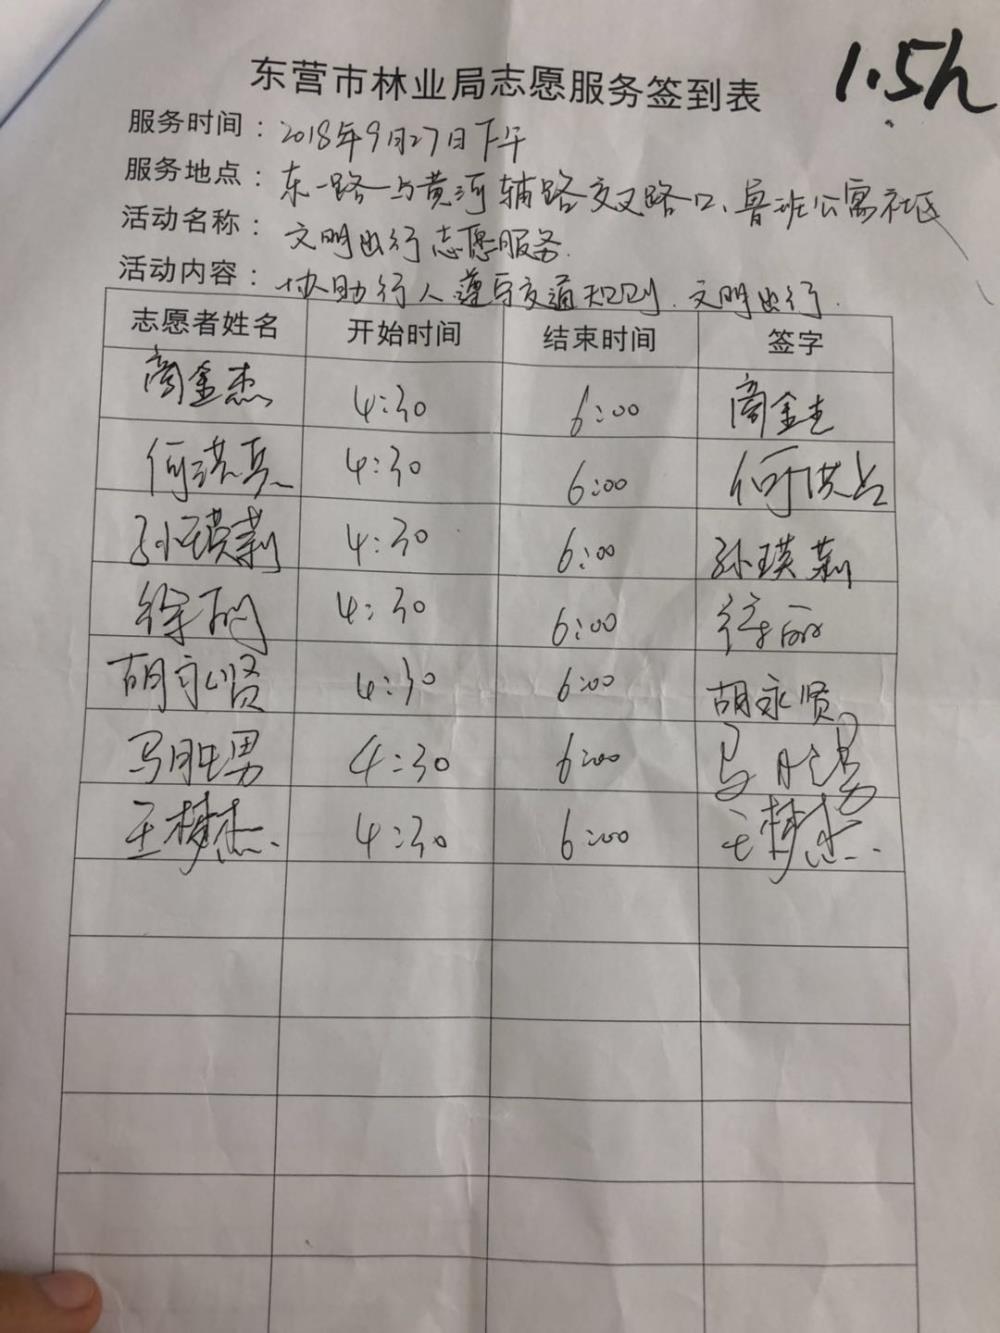 1.5h
东营市林业局志愿服务签到表
服务时间：2018年9月27日下午
服务地点：东一路与黄河辅路交叉路口、鲁班公寓社区
活动名称：文明出行志愿服务.
活动内容：协助行人遵守交通规则.文明出行.
志愿者姓名 开始时间 结束时间 签字
商金杰 4:30 6:00 商金杰
何洪兵 4:30 6:00 何洪兵
孙瑛莉 4:30 6:00 孙瑛莉
徐丽 4:30 6:00 徐丽
胡永贤 4:30 6:00 胡永贤
马胜男 4:30 6:00 马胜男
王梦杰. 4:30 6:00 王梦杰.